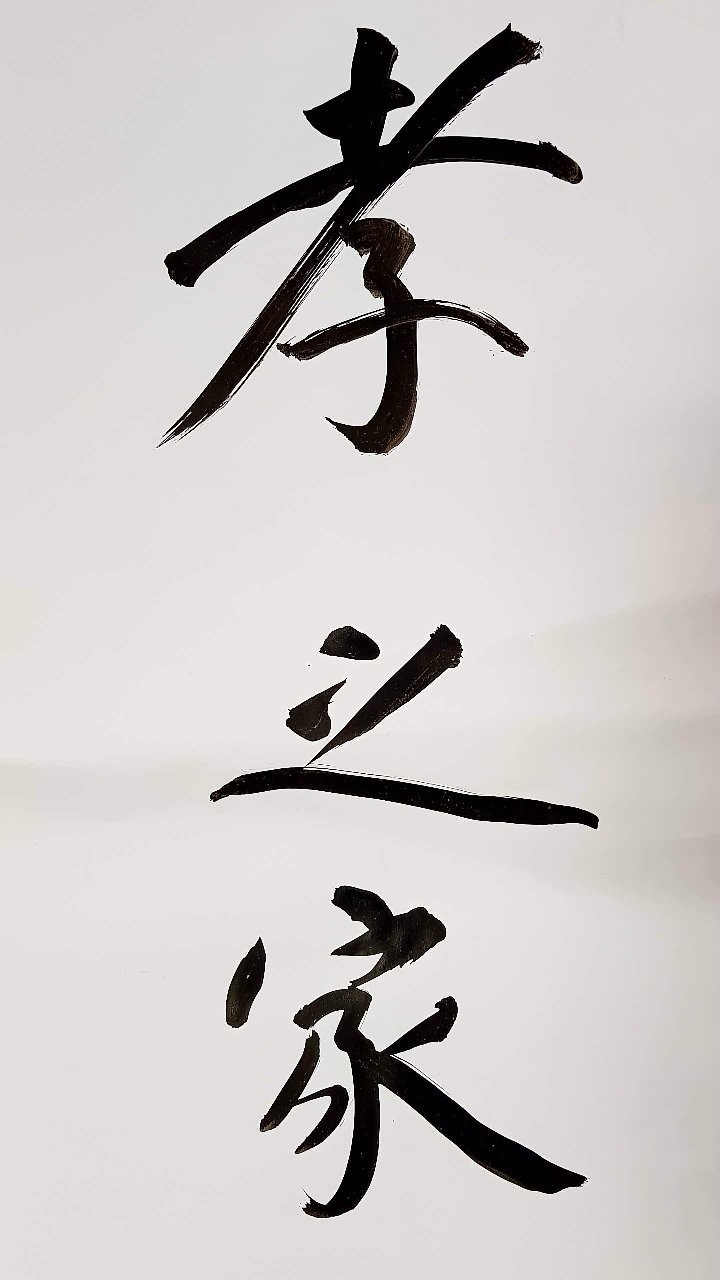 孝之家